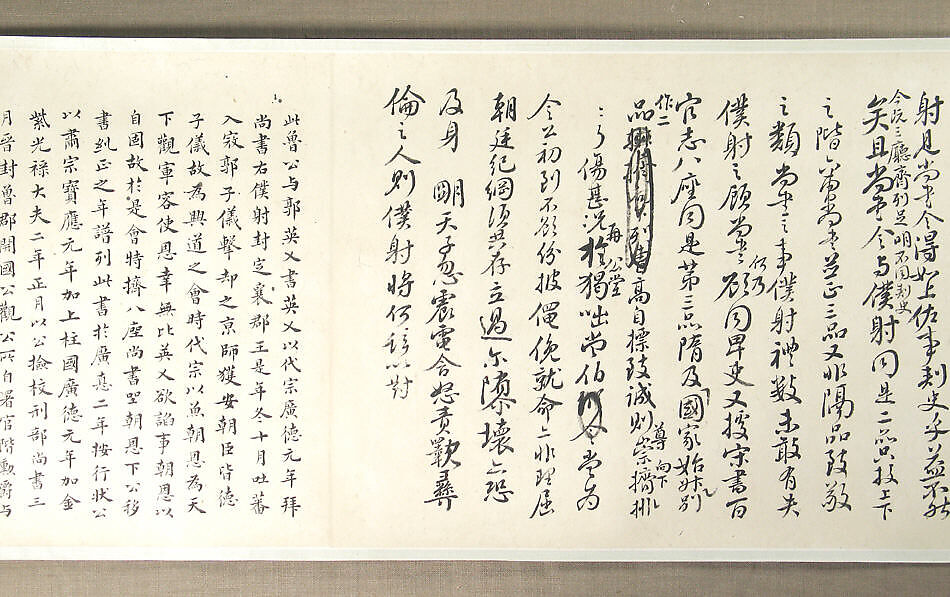 射見尚書令得如上佐事刺史乎益不然
今院三廳齊列足明不同刺史
矣且尚書令与僕射同是二品校上下
之階六曹尚書並正三品又非隔品致敬
之類尚書之事僕射禮數未敢有失
何乃
僕射之顧尚書欲同卑吏又據宋書百
官志八座同是第三品隋及國家始升別
作二
品高自標致誠則崇擠排
尊向下
傷甚況於獨咄常伯當為
再公堂
令公初到不欲紛披僶俛就命亦非理屈
朝廷紀綱須共存立過尔隳壞亦恐
及身 明天子忽震電含怒責斁彝
倫之人則僕射將何辭以對
此魯公与郭英乂書英乂以代宗廣德元年拜
尚書右僕射封定襄郡王是年冬十月吐蕃
入寇郭子儀擊却之京師獲安朝臣皆德
子儀故為興道之會時代宗以魚朝恩為天
下觀軍容使恩幸無比英乂欲諂事朝恩以
自固故於是會特擠八座尚書坐朝恩下公移
書糾正之年譜列此書於廣惪二年按行狀公
以肅宗寶應元年加上柱國廣德元年加金
紫光祿大夫二年正月以公檢校刑部尚書三
月晉封魯郡開國公觀公所自署官階勳爵与